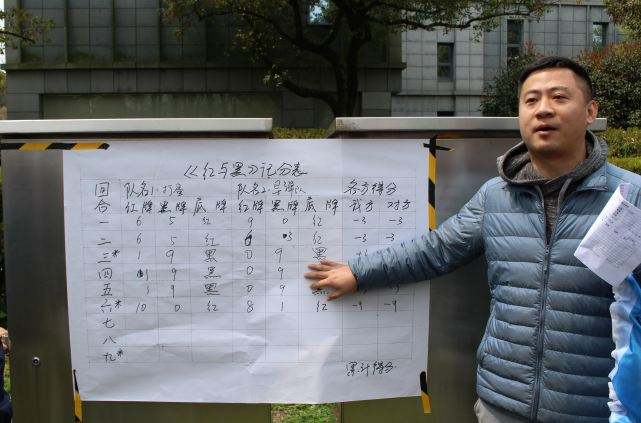 《红与黑》记分表
回 队名1: 队名2: 各方得分
合 红牌 黑牌 底牌 红牌 黑牌 底牌 我方 对方
一 6 5 红 9 0 红 -3 -3
二 6 5 红 3 红 -3 -3
三* 1 9 黑 0 9 黑
四 9 黑 0 9
五 9 黑 0 9 黑
六* 10 0 红 8 1 红 -9 -9
七
八
九*
累计得分